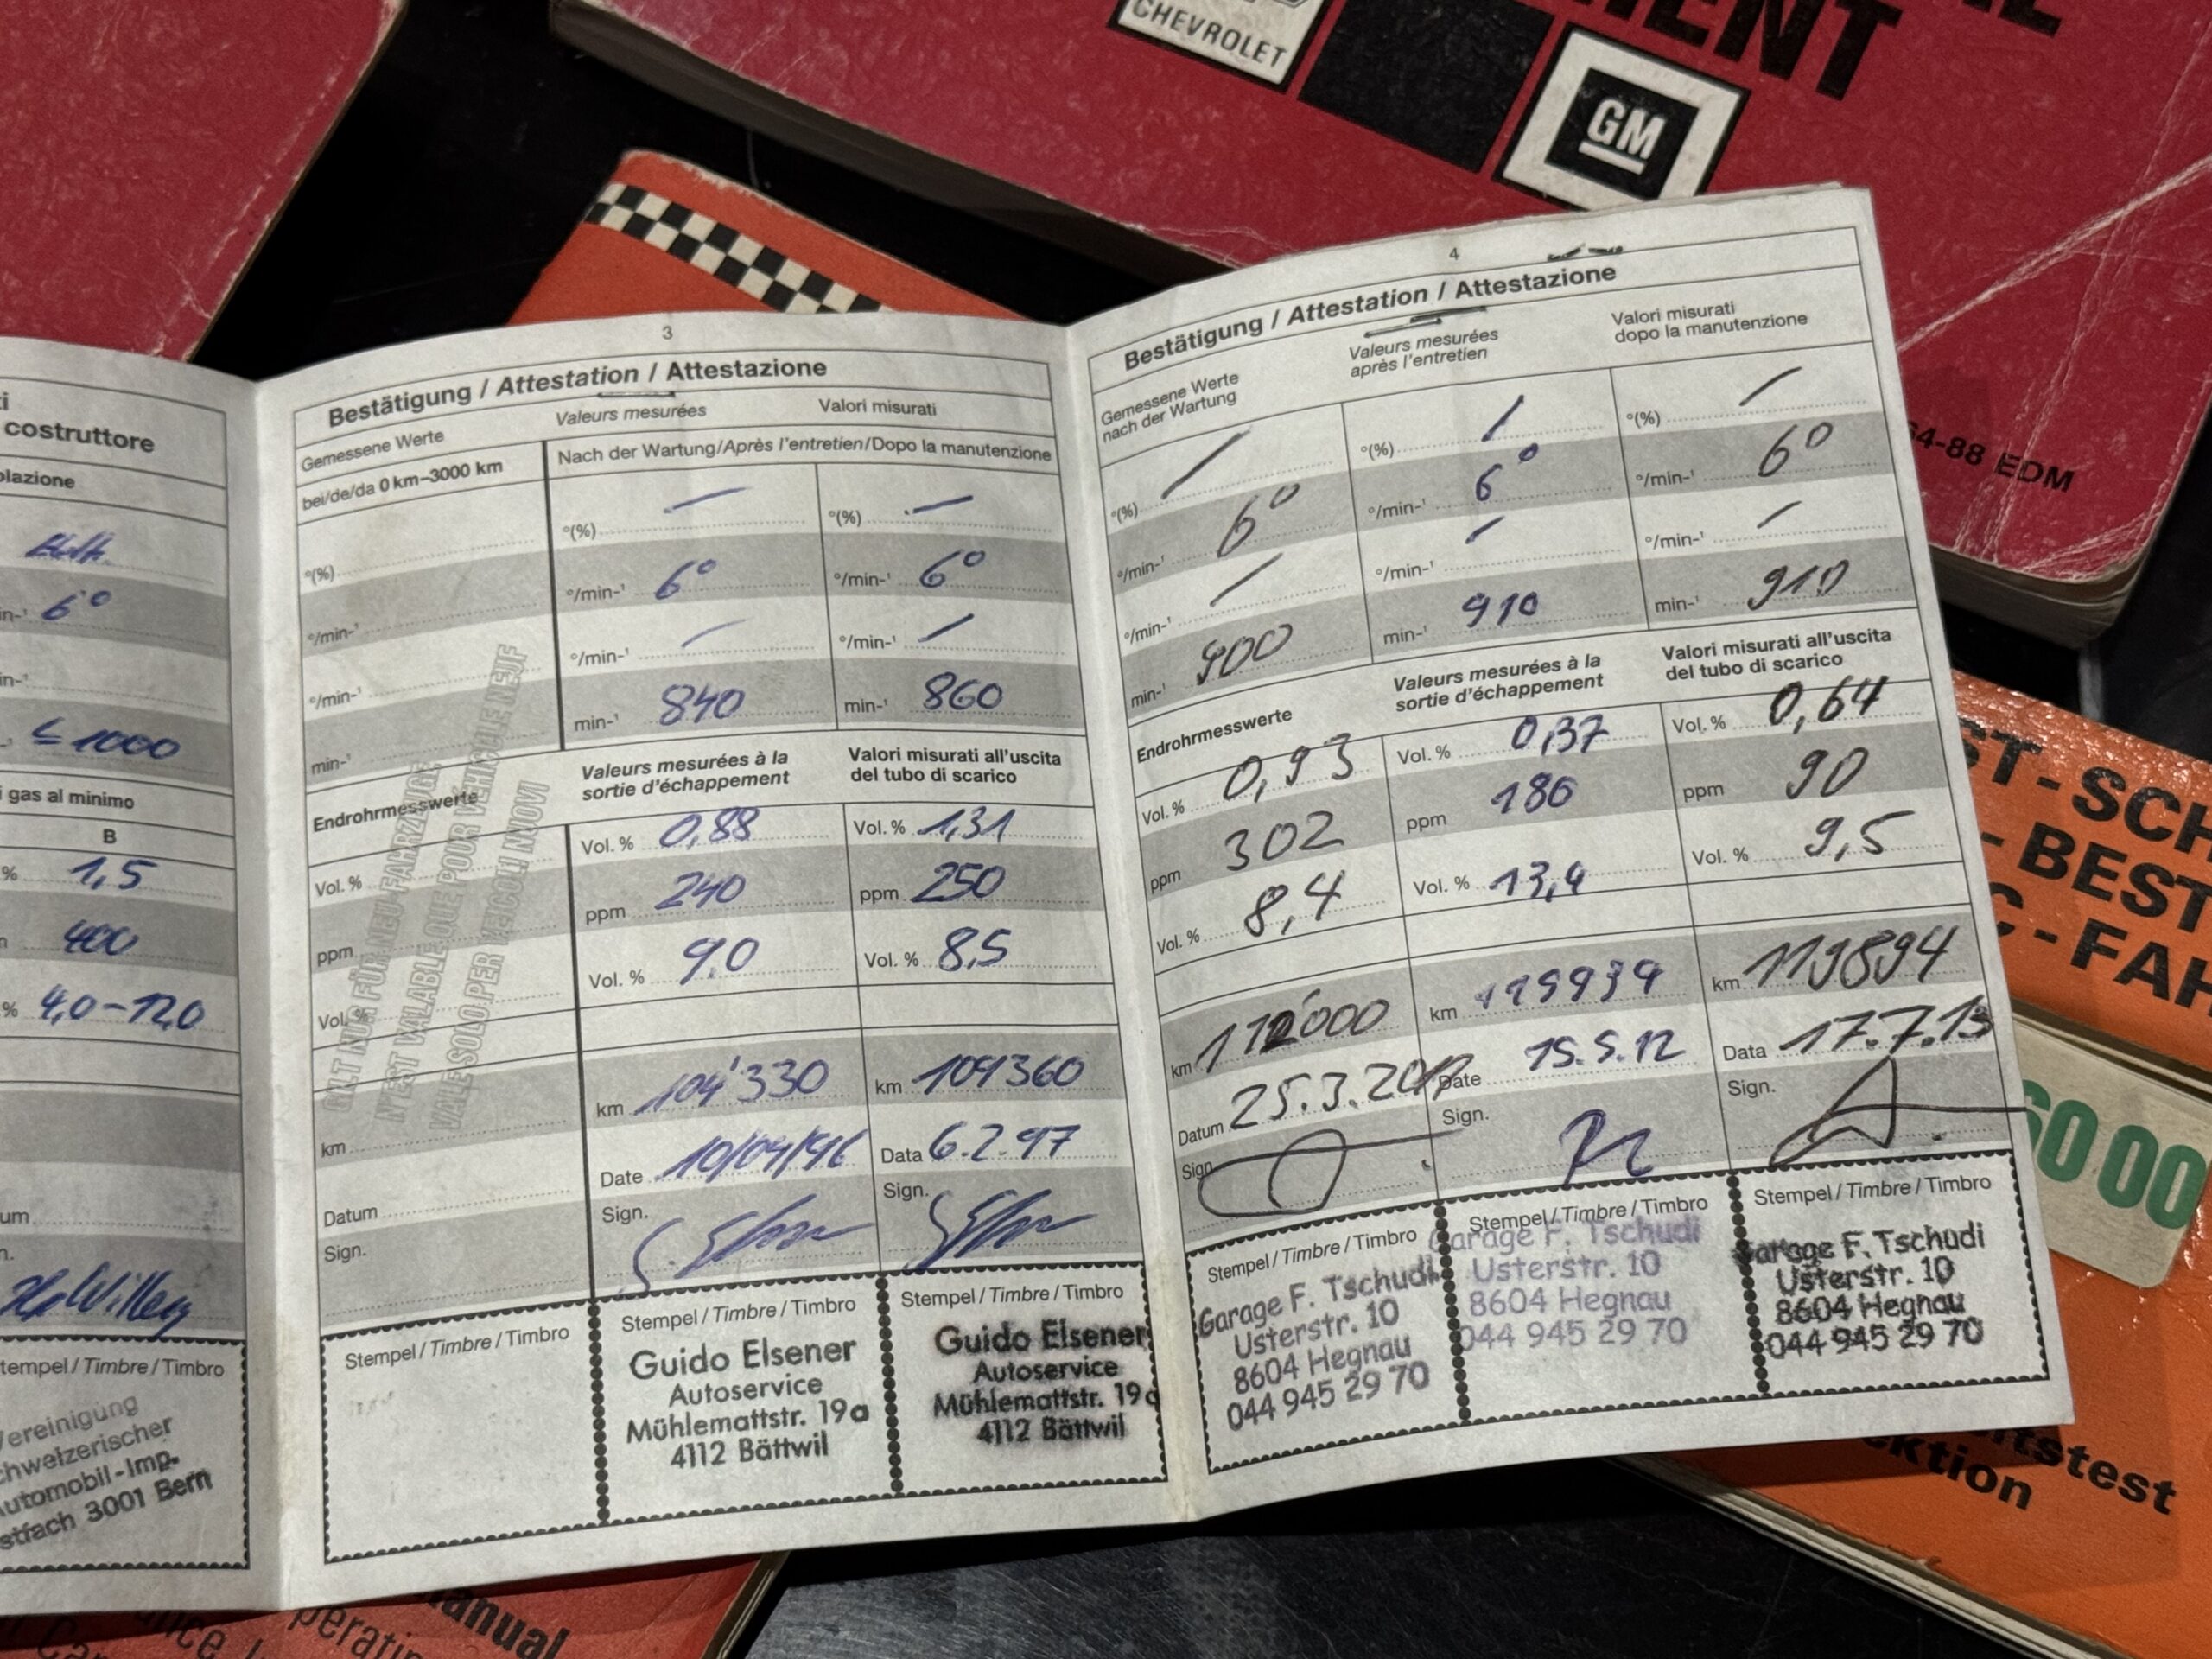 CHEVROLET
GM
64-88 EDM
costruttore
6°
≤ 1000
gas al minimo
B
% 1,5
400
% 4,0-12,0
Stempel / Timbre / Timbro
Vereinigung
Schweizerischer
Automobil-Imp.
Postfach 3001 Bern
3
Bestätigung / Attestation / Attestazione
Gemessene Werte
Valeurs mesurées
Valori misurati
bei/de/da 0 km–3000 km
Nach der Wartung/Après l'entretien/Dopo la manutenzione
°(%)
°/min-¹
°/min-¹
min-¹
Endrohrmesswerte
Vol. %
ppm
Vol. %
km
Datum
Sign.
Stempel / Timbre / Timbro
GILT NUR FÜR NEU-FAHRZEUGE
N'EST VALABLE QUE POUR VÉHICULE NEUF
VALE SOLO PER VEICOLI NUOVI
°(%) —
°/min-¹ 6°
°/min-¹ —
min-¹ 840
Valeurs mesurées à la
sortie d'échappement
Vol. % 0,88
ppm 240
Vol. % 9.0
km 104'330
Date 10/04/96
Sign.
Stempel / Timbre / Timbro
Guido Elsener
Autoservice
Mühlemattstr. 19a
4112 Bättwil
°(%) —
°/min-¹ 6°
°/min-¹ /
min-¹ 860
Valori misurati all'uscita
del tubo di scarico
Vol. % 1,31
ppm 250
Vol. % 8,5
km 109360
Data 6.2.97
Sign.
Stempel / Timbre / Timbro
Guido Elsener
Autoservice
Mühlemattstr. 19a
4112 Bättwil
4
Bestätigung / Attestation / Attestazione
Gemessene Werte
nach der Wartung
°(%) /
°/min-¹ 6°
°/min-¹ /
min-¹ 900
Endrohrmesswerte
Vol. % 0,93
ppm 302
Vol. % 8,4
km 112'000
Datum 25.3.20
Sign.
Stempel / Timbre / Timbro
Garage F. Tschudi
Usterstr. 10
8604 Hegnau
044 945 29 70
Valeurs mesurées
après l'entretien
°(%) /
°/min-¹ 6°
°/min-¹ /
min-¹ 910
Valeurs mesurées à la
sortie d'échappement
Vol. % 0,37
ppm 186
Vol. % 13,4
km
Date 15.5.12
Sign.
Stempel / Timbre / Timbro
Garage F. Tschudi
Usterstr. 10
8604 Hegnau
044 945 29 70
Valori misurati
dopo la manutenzione
°(%) /
°/min-¹ 6°
°/min-¹ /
min-¹ 910
Valori misurati all'uscita
del tubo di scarico
Vol. % 0,64
ppm 90
Vol. % 9,5
km 119894
Data 17.7.13
Sign.
Stempel / Timbre / Timbro
Garage F. Tschudi
Usterstr. 10
8604 Hegnau
044 945 29 70